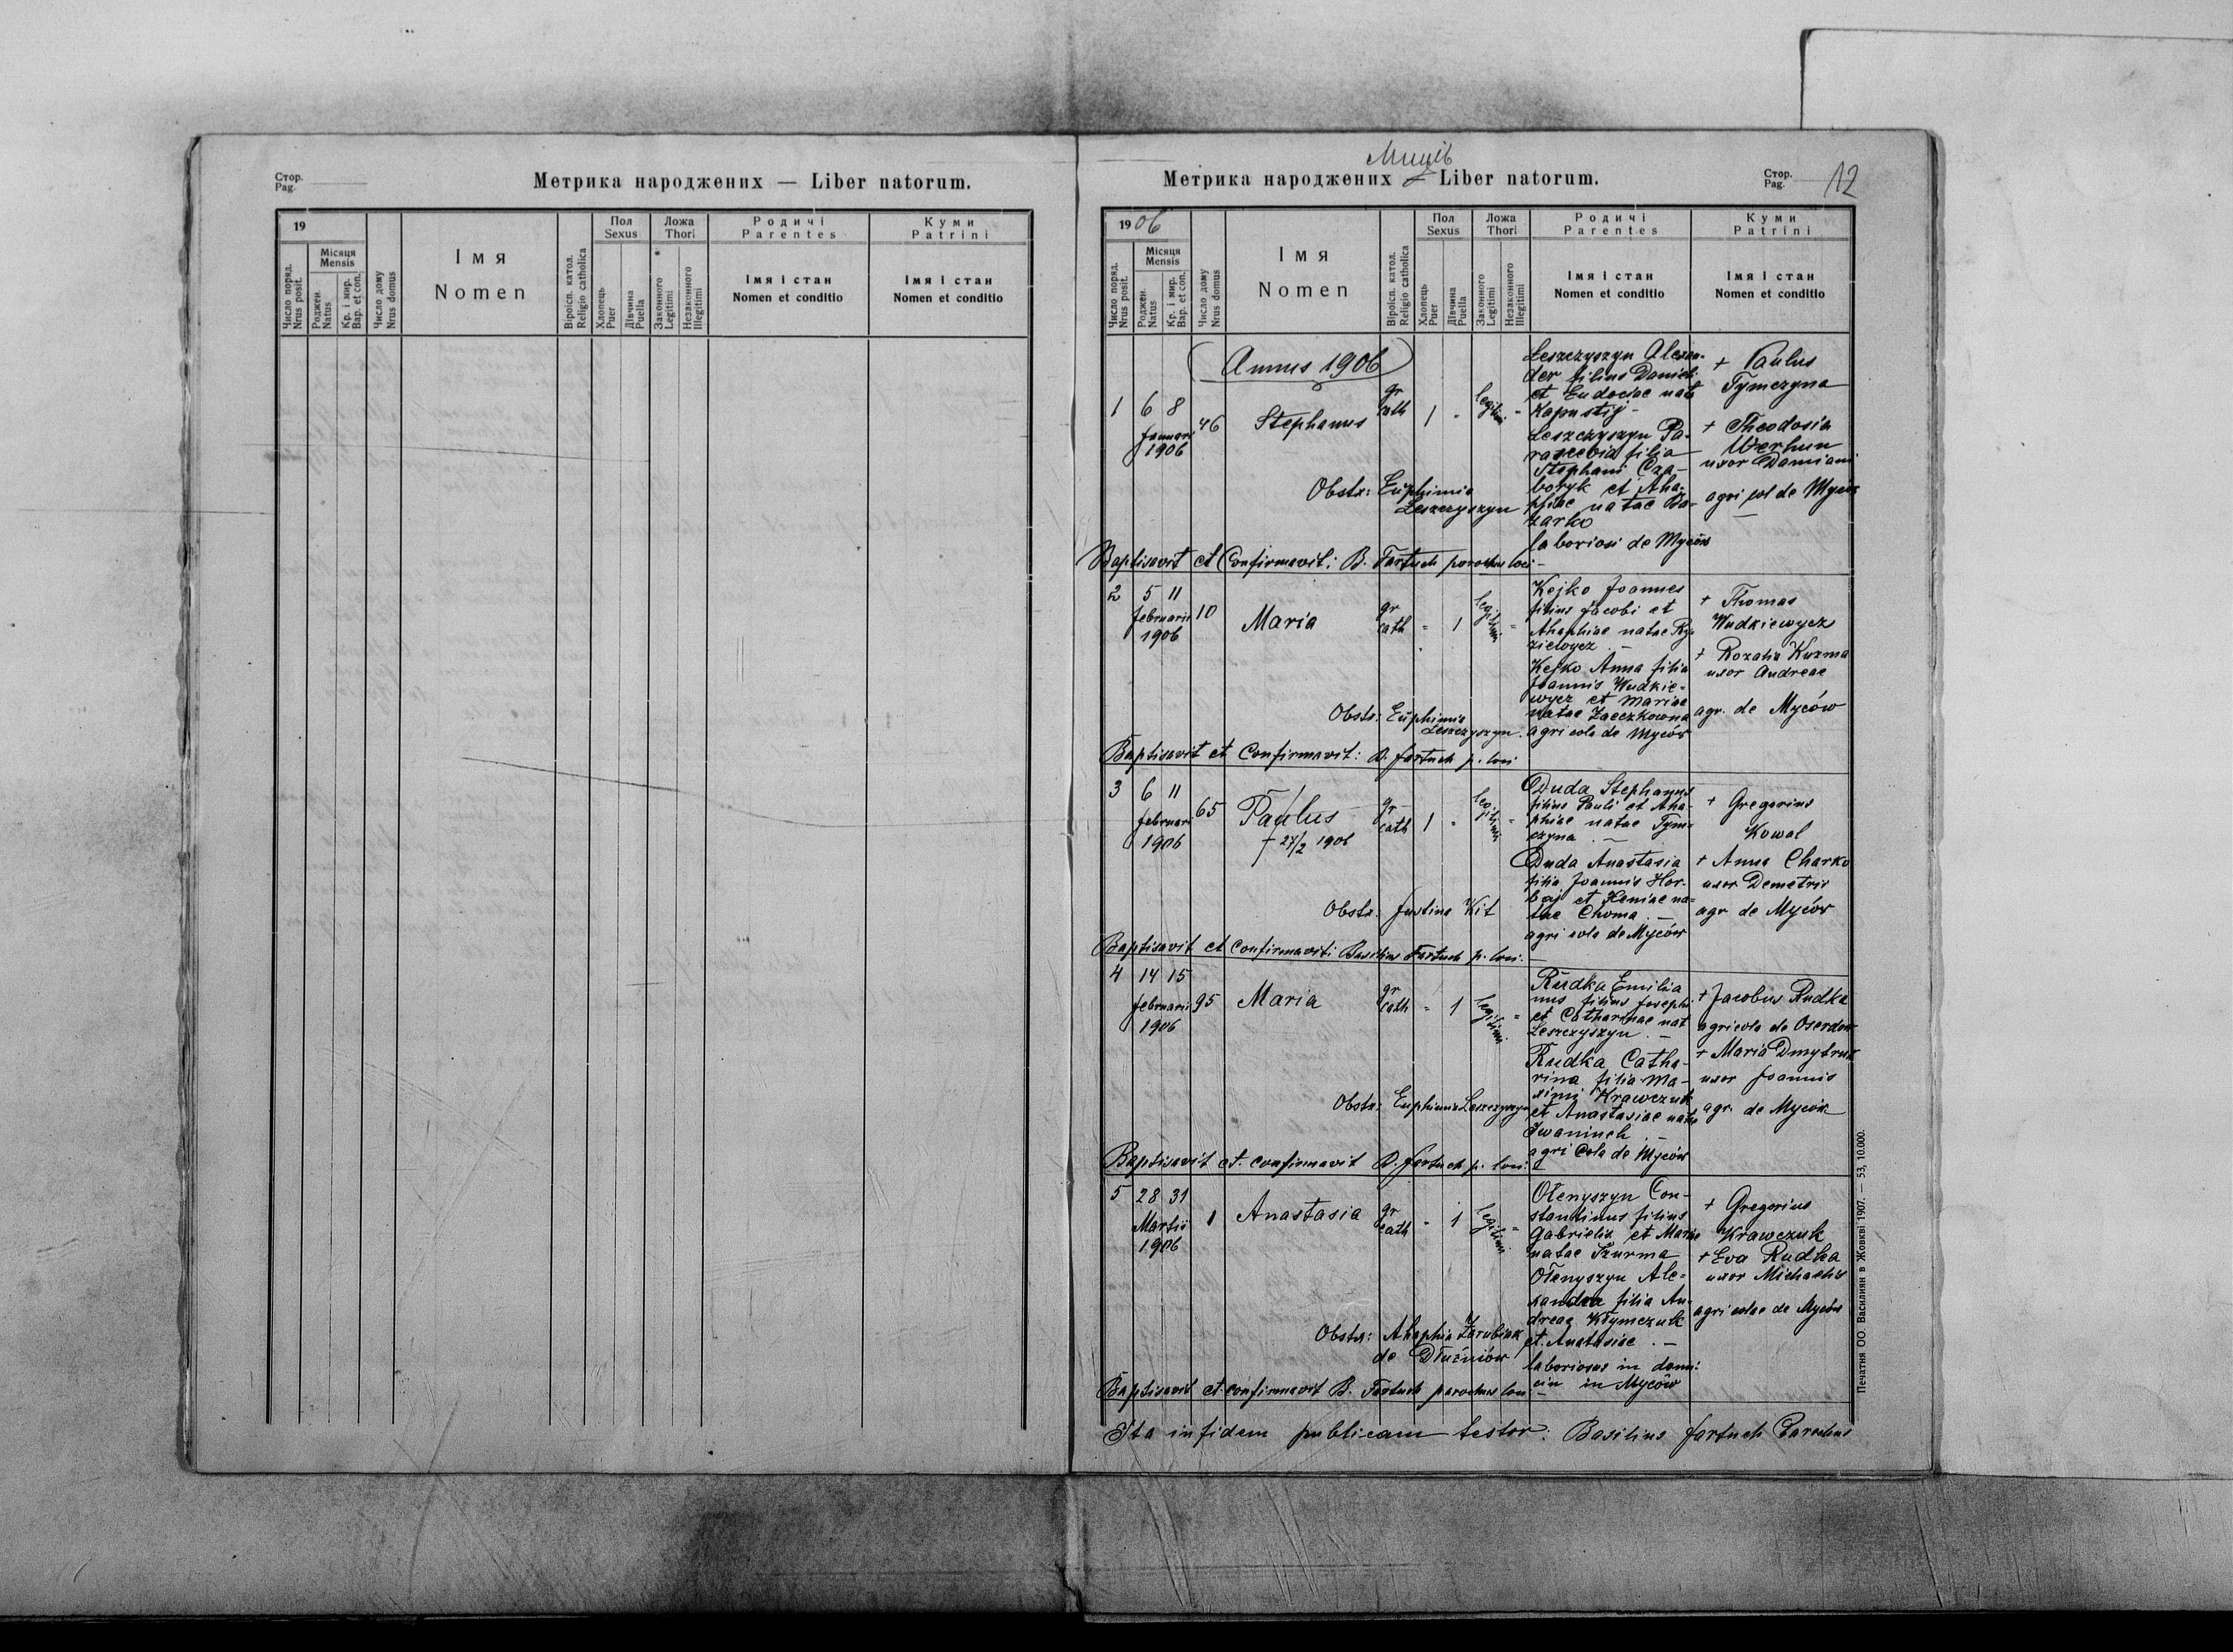 Стор.
Pag.
Метрика народжених — Liber natorum.
19
Число поряд.
Nrus posit.
Місяця
Mensis
Роджен.
Natus
Кр. і мир.
Bap. et con.
Число дому
Nrus domus
Імя
Nomen
Віроісп. катол.
Religio catholica
Пол
Sexus
Хлопець
Puer
Дівчина
Puella
Ложа
Thori
Законного
Legitimi
Незаконного
Illegitimi
Родичі
Parentes
Імя і стан
Nomen et conditio
Куми
Patrini
Імя і стан
Nomen et conditio
Миців
Метрика народжених — Liber natorum.
Стор.
Pag. 12
1906
Число поряд.
Nrus posit.
Місяця
Mensis
Роджен.
Natus
Кр. і мир.
Bap. et con.
Число дому
Nrus domus
Імя
Nomen
Віроісп. катол.
Religio catholica
Пол
Sexus
Хлопець
Puer
Дівчина
Puella
Ложа
Thori
Законного
Legitimi
Незаконного
Illegitimi
Родичі
Parentes
Імя і стан
Nomen et conditio
Куми
Patrini
Імя і стан
Nomen et conditio
(Annus 1906)
1 6 8
Januari
1906
46
Stephanus
gr
cath
1 "
legitimi
"
Leszczyszyn Alexan-
der filius Danieli
et Eudociae nata
Kapustij -
Leszczyszyn Pa-
rascevia filia
Stephani Cza-
botyk et Aha-
phiae natae Ba-
zarko
laboriosi de Myców
+ Paulus
Tymczyna
+ Theodosia
Uzerhun
uxor Damiani
agricol de Myców
Obstx: Euphimia
Leszczyszyn
Baptisavit et Confirmavit: B. Fartuch parochus loci -
2 5 11
februarii
1906
10
Maria
gr
cath
" 1
legitimi
"
Kojko Joannes
filius Jacobi et
Ahaphiae natae
Kojko Anna filia
Joannis Wudkie-
wycz et Mariae
natae Zaeczkowna
agricola de Myców
+ Thomas
Wudkiewycz
+ Rozalia Kuzma
uxor Andreae
agr. de Myców
Obstx: Euphimia
Leszczyszyn.
Baptisavit et Confirmavit: B. Fartuch p. loci
3 6 11
februari
1906
65
Paulus
† 27/2 1906
gr
cath
1 "
legitimi
"
Duda Stephanus
filius Pauli et Aha-
phiae natae Tym-
czyna . -
Duda Anastasia
filia Joannis Hor-
baj et Xeniae na-
tae Choma . -
agricola de Myców
+ Gregorius
Kowal
+ Anna Charko
uxor Demetrii
agr de Myców
Obstx: Justina Kit
Baptisavit et Confirmavit: Basilius Fartuch p. loci:
4 14 15
februarii
1906
95
Maria
gr
cath
" 1
legitimi
"
Rudka Emilia
nus filius Josephi
et Catharinae nat
Leszczyszyn . -
Rudka Catha-
rina filia Ma-
ximi Krawczuk
et Anastasiae natae
Iwaninch . -
agricola de Myców
+ Jacobus Rudka
agricola de Oserdow
+ Maria Dmytruk
uxor Joannis
agr. de Myców
Obstx: Euphimia Leszczyszyn
Baptisavit et confirmavit B. Fartuch p. loci:
5 28 31
Martii
1906
1
Anastasia
gr
cath
" 1
legitimi
"
Ołenyszyn Con-
stantinus filius
Gabrielis et Mariae
natae Szurma
Ołenyszyn Ale-
xandra filia An-
dreae Kłymczuk
et Anatasiae . -
laboriosus in domi:
cin in Myców
+ Gregorius
Krawczuk
+ Eva Rudka
uxor Michaelis
agricolae de Myców
Obstx: Ahaphia Zarubiak
de Dłużniów
Baptisavit et confirmavit B. Fartuch parochus loci -
Ita in fidem publicam testor: Basilius Fartuch Parochus
Печатня ОО. Василиян в Жовкві 1907. — 53, 10.000.